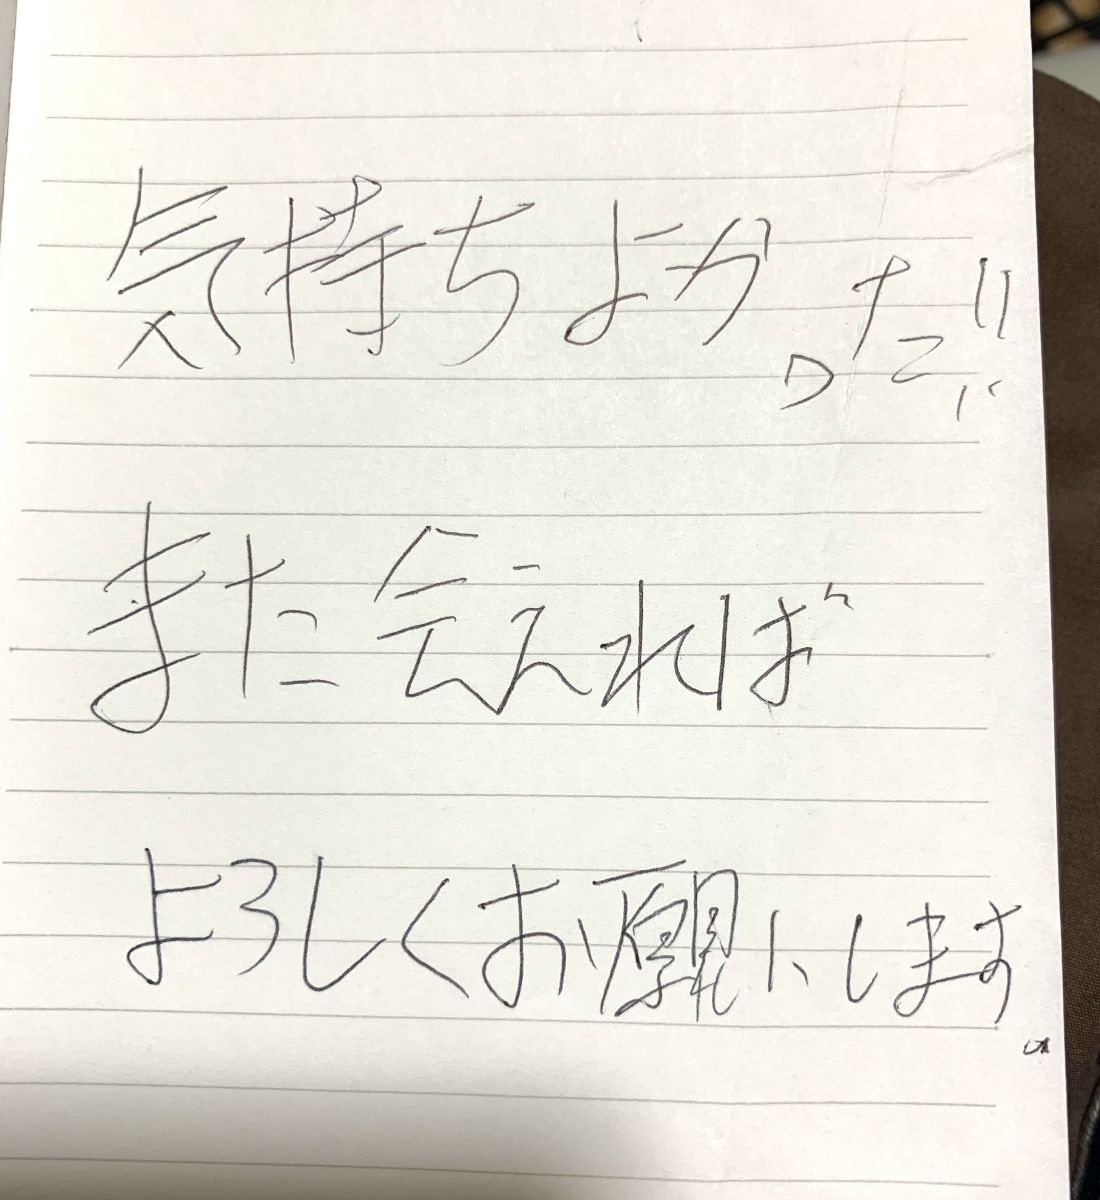 気持ちよかった!!
また会えれば
よろしくお願いします